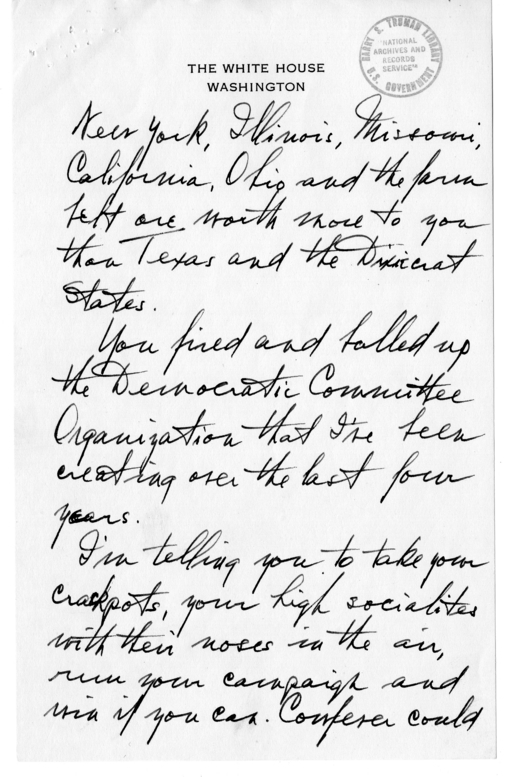 THE WHITE HOUSE
WASHINGTON
HARRY S. TRUMAN LIBRARY
"NATIONAL
ARCHIVES AND
RECORDS
SERVICE"
U.S. GOVERNMENT
New York, Illinois, Missouri,
California, Ohio and the farm
belt are worth more to you
than Texas and the Dixiecrat
States.
You fired and balled up
the Democratic Committee
Organization that I've been
creating over the last four
years.
I'm telling you to take your
crackpots, your high socialites
with their noses in the air,
run your campaign and
win if you can. Cowfever could